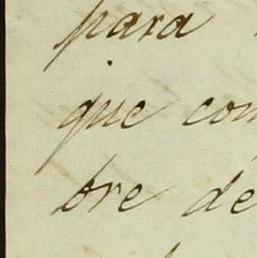 para
que com
bre de